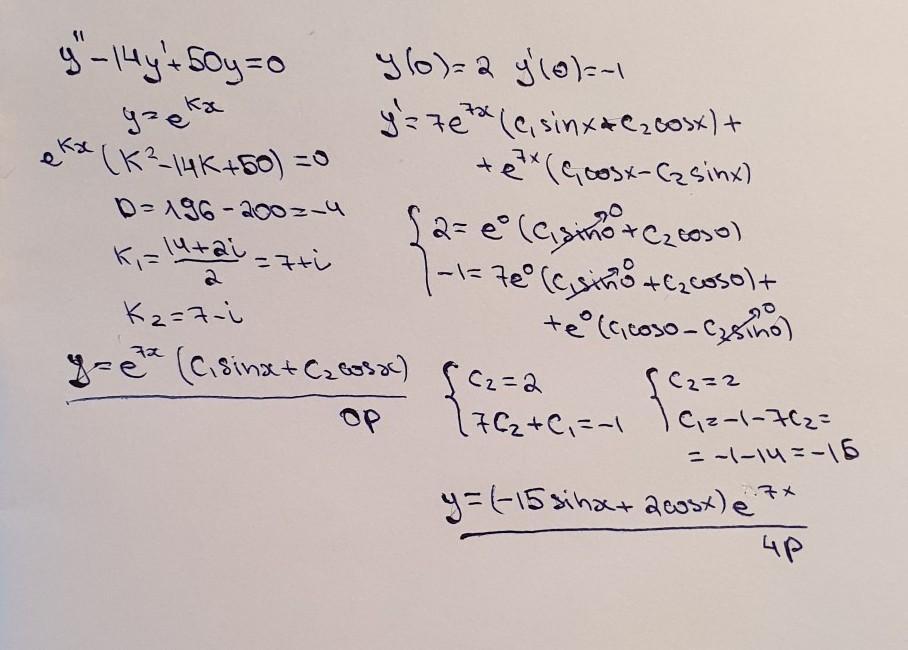 y'' - 14y' + 50y = 0
y = e^{kx}
e^{kx} (k² - 14k + 50) = 0
D = 196 - 200 = -4
k₁ = \frac{14+2i}{2} = 7+i
k₂ = 7-i
y = e^{7x} (C₁ sinx + C₂ cosx)
OP
y(0) = 2 y'(0) = -1
y' = 7e^{7x} (C₁ sinx + C₂ cosx) +
+ e^{7x} (C₁ cosx - C₂ sinx)
{ 2 = e⁰ (C₁ sin0 →0 + C₂ cos0)
-1 = 7e⁰ (C₁ sin0 →0 + C₂ cos0) +
+ e⁰ (C₁ cos0 - C₂ sin0 →0)
{ C₂ = 2 { C₂ = 2
7C₂ + C₁ = -1 C₁ = -1 - 7C₂ =
= -1 - 14 = -15
y = (-15 sinx + 2cosx) e^{7x}
чр